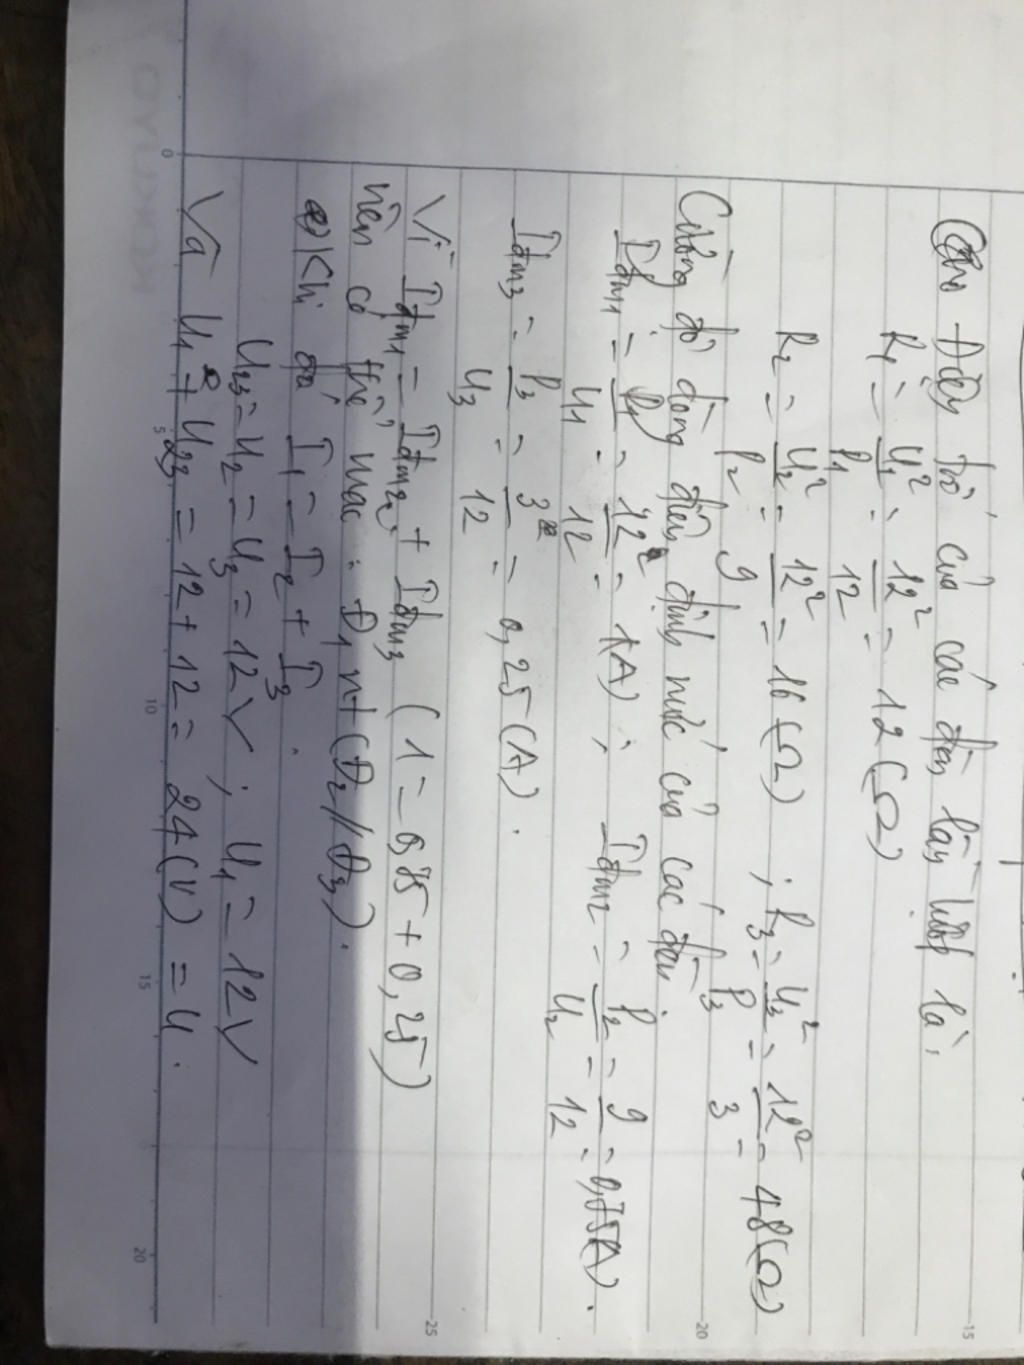 Điện trở của các đèn lần lượt là:
R₁ = U₁²/P₁ = 12²/12 = 12(Ω)
R₂ = U₂²/P₂ = 12²/9 = 16(Ω) ; R₃ = U₃²/P₃ = 12²/3 = 48(Ω)
Cường độ dòng điện định mức của các đèn:
Iđm₁ = P₁/U₁ = 12/12 = 1(A) ; Iđm₂ = P₂/U₂ = 9/12 = 0,75(A).
Iđm₃ = P₃/U₃ = 3/12 = 0,25(A).
Vì Iđm₁ = Iđm₂ + Iđm₃ (1 = 0,75 + 0,25)
nên có thể mắc: Đ₁ nt (Đ₂ // Đ₃).
Khi đó I₁ = I₂ + I₃.
U₂₃ = U₂ = U₃ = 12V ; U₁ = 12V
Và U₁ + U₂₃ = 12 + 12 = 24(V) = U.
MOKKUYO
0 5 10 15 20
25 20 15